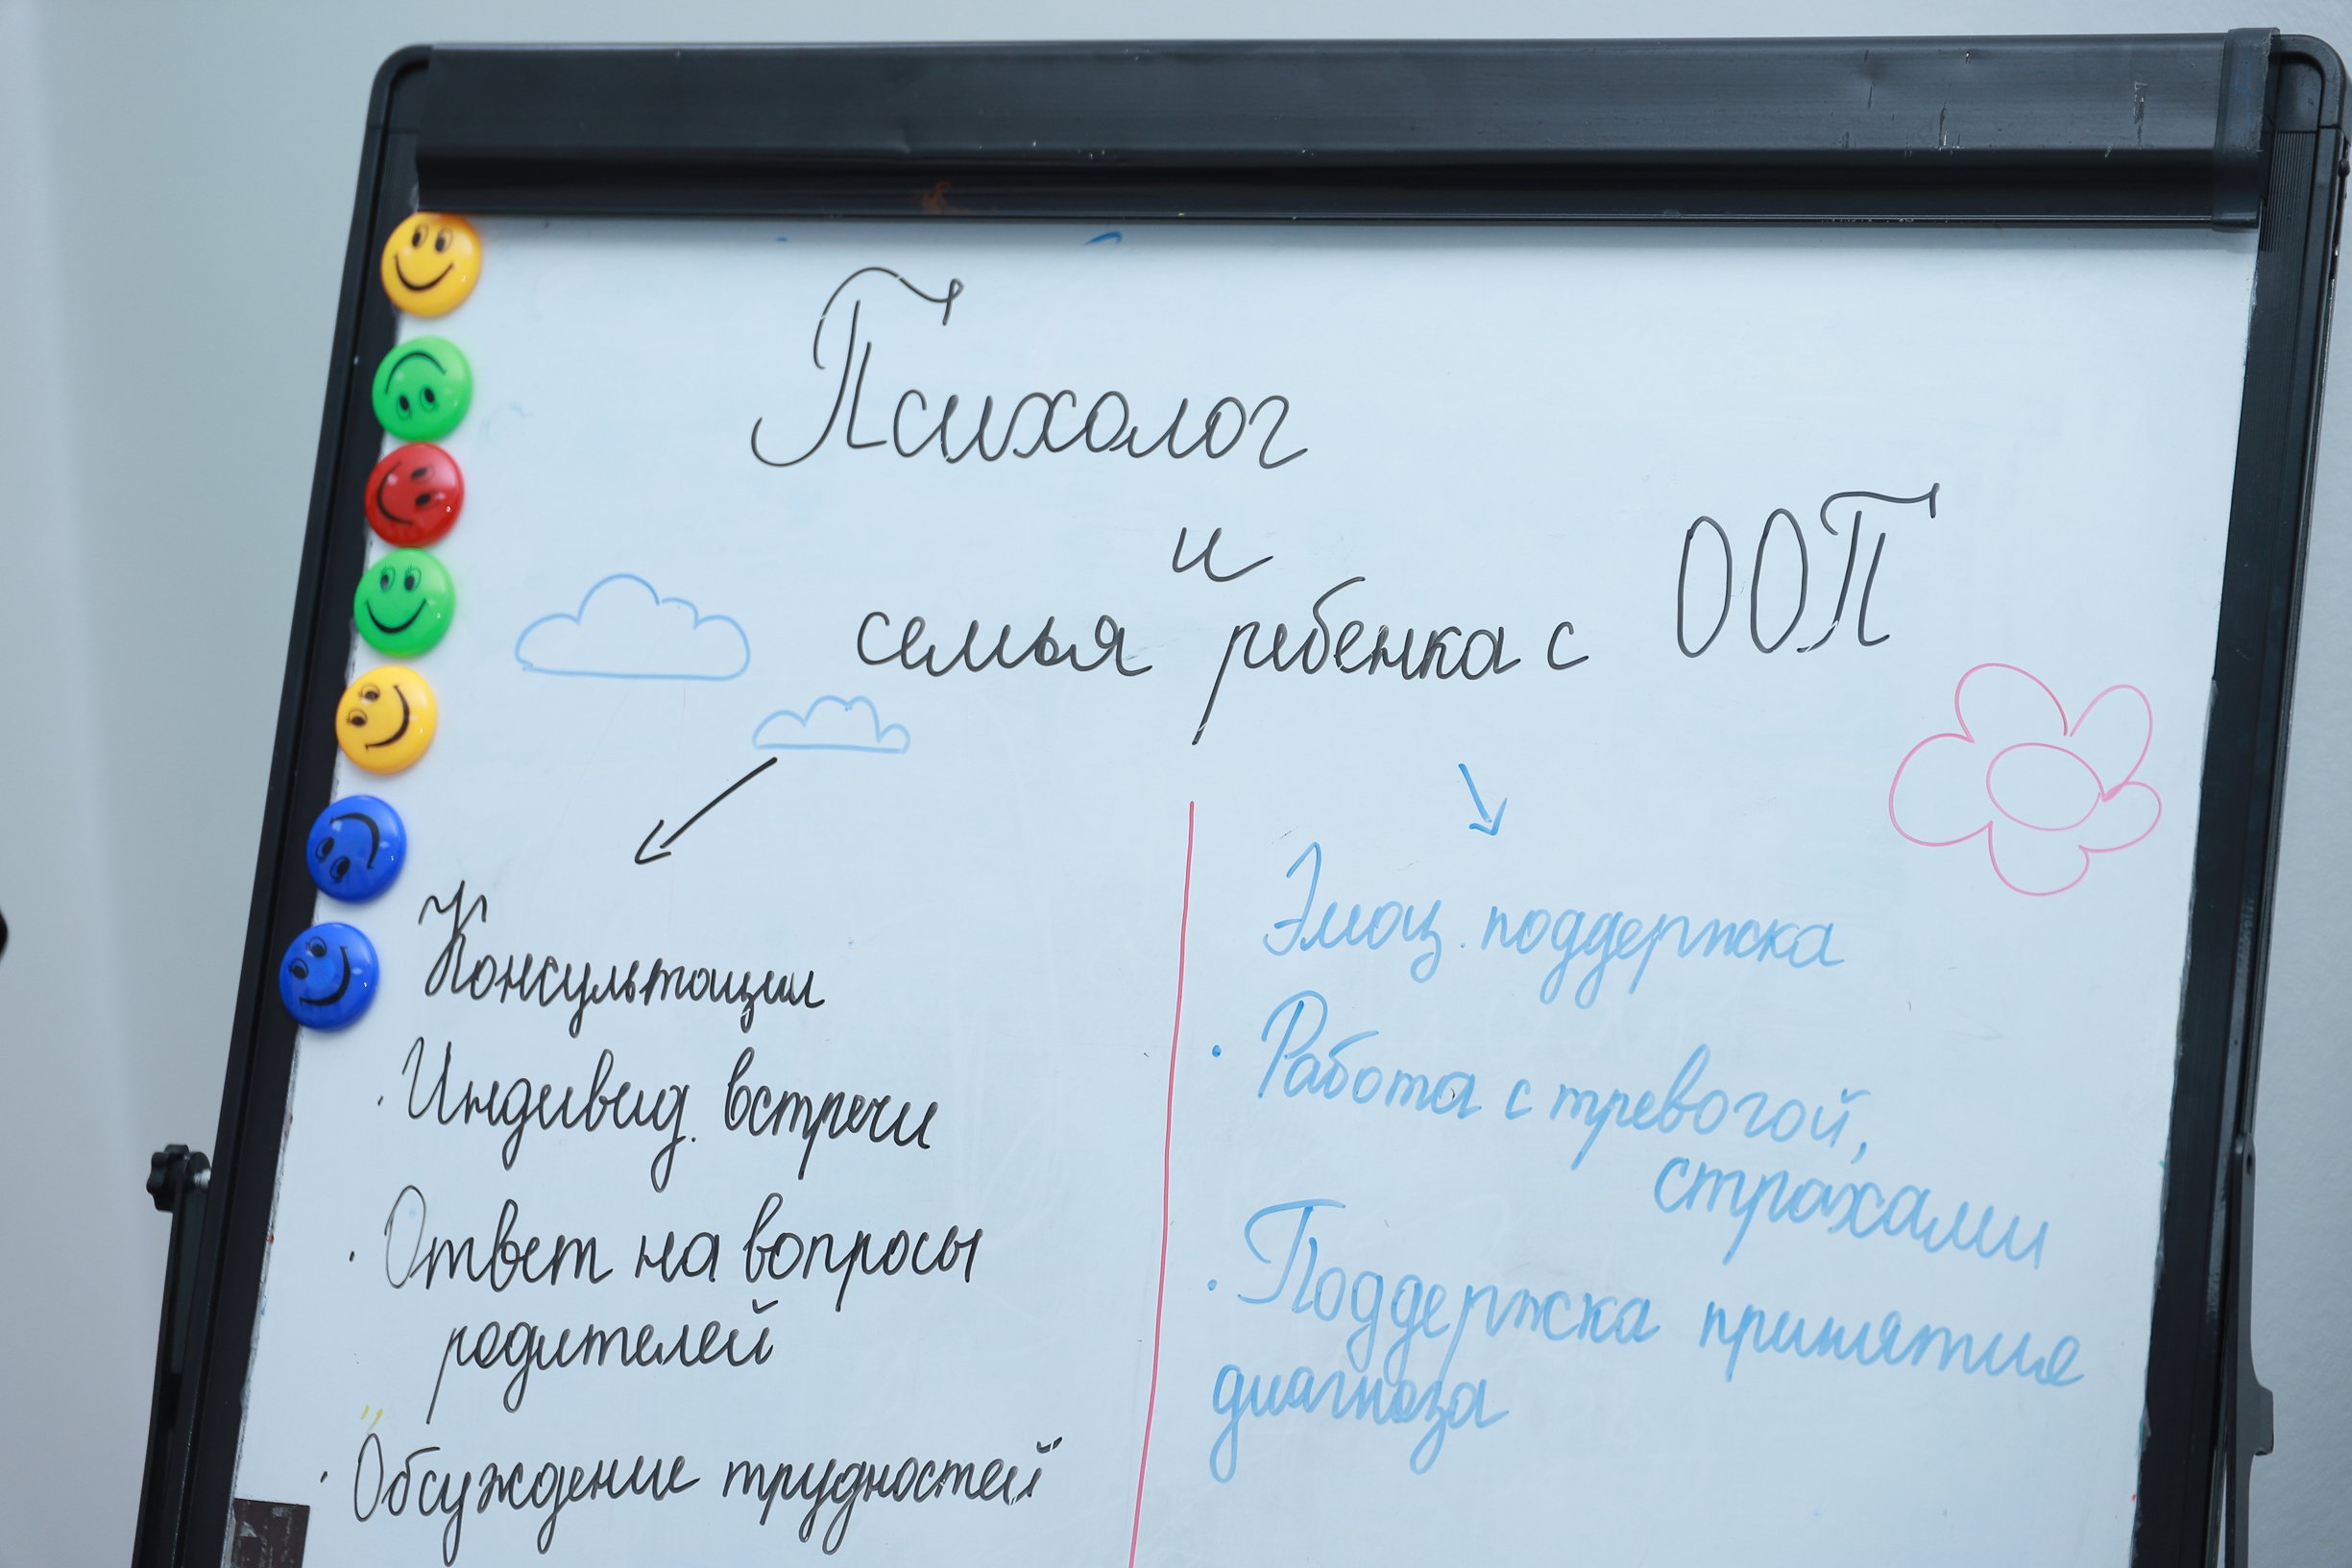 Психолог
и
семья ребенка с ООП
Консультации
· Индивид. встречи
· Ответ на вопросы
родителей
· Обсуждение трудностей
Эмоц. поддержка
· Работа с тревогой,
страхами
· Поддержка принятие
диагноза